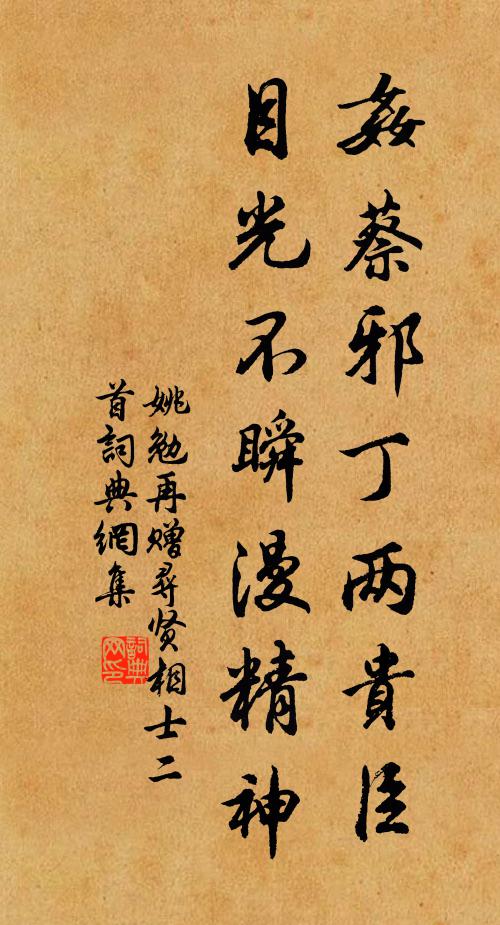 姦蔡邪丁两貴臣
目光不瞬漫精神
姚勉再赠尋贤相士二
首詞典網集
詞典
网印